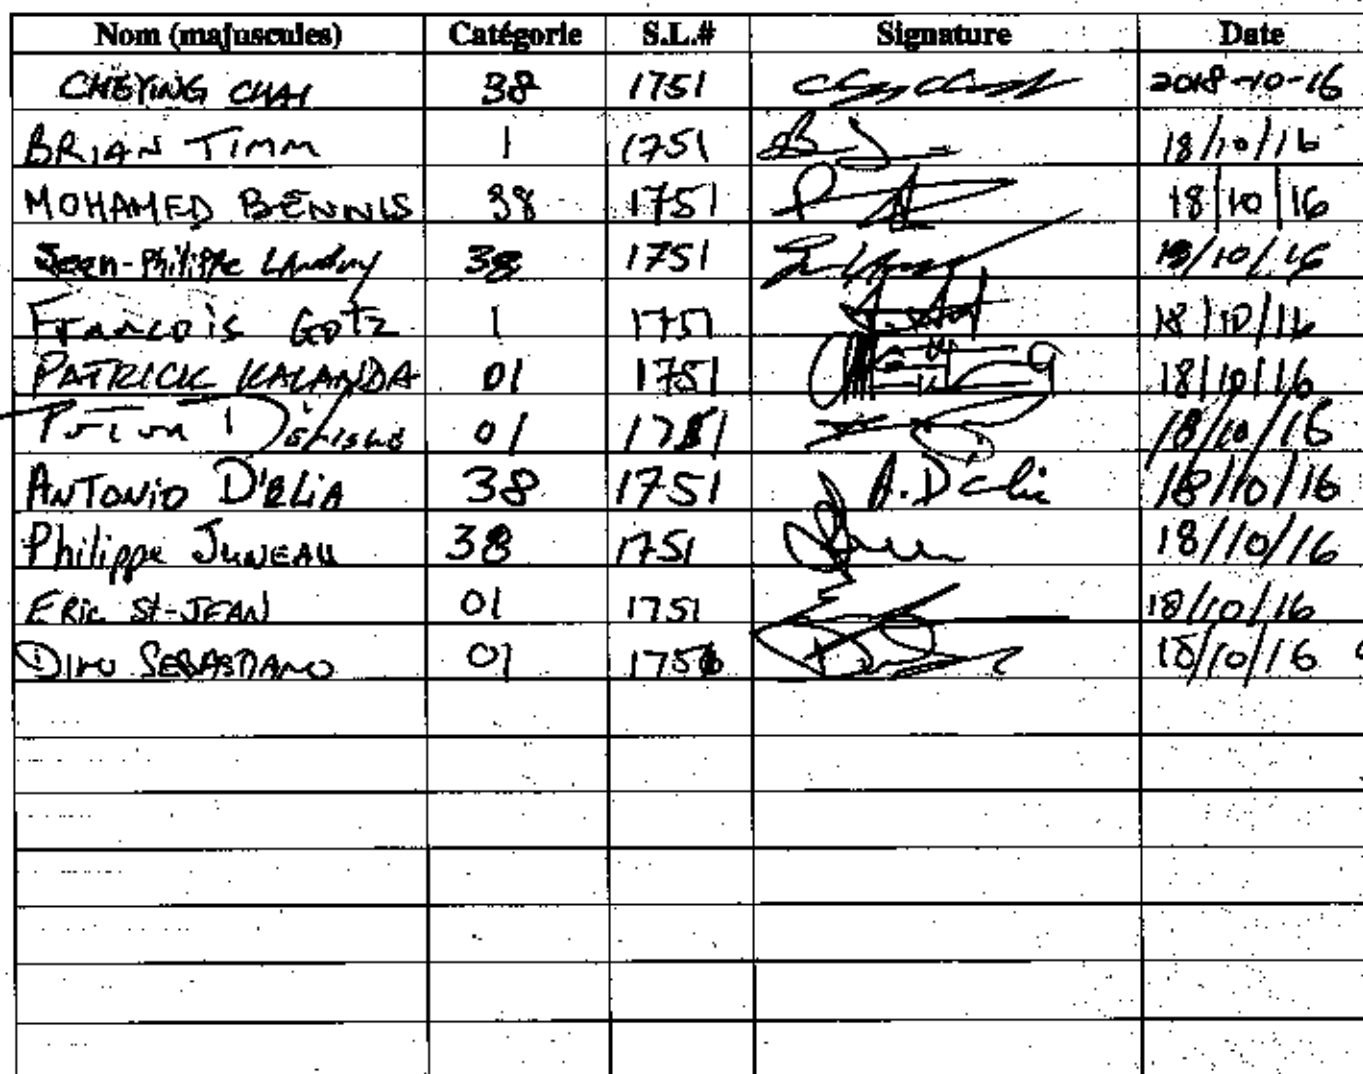 Nom (majuscules) Catégorie S.L.# Signature Date
CHEYING CHAI 38 1751 2018-10-16
BRIAN TIMM 1 1751 18/10/16
MOHAMED BENNIS 38 1751 18/10/16
Jean-Philippe Landry 38 1751 18/10/16
François Gotz 1 1751 18/10/16
PATRICK KALANDA 01 1751 18/10/16
01 1751 18/10/16
ANTONIO D'ELIA 38 1751 A. D'elia 18/10/16
Philippe JUNEAU 38 1751 18/10/16
ERIC St-JEAN 01 1751 18/10/16
DINO SEBASTIANO 01 1751 18/10/16